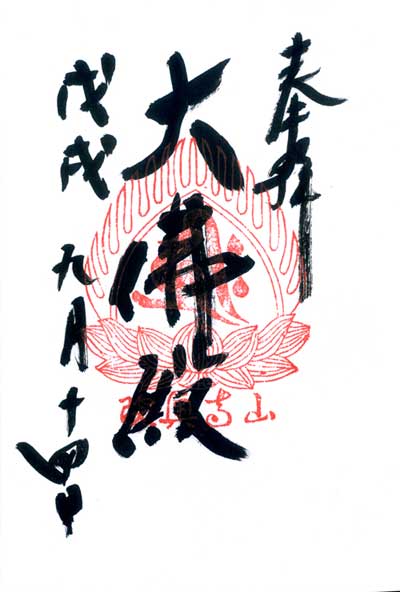 奉拜
大佛殿
戊戌 九月十四日
山高真